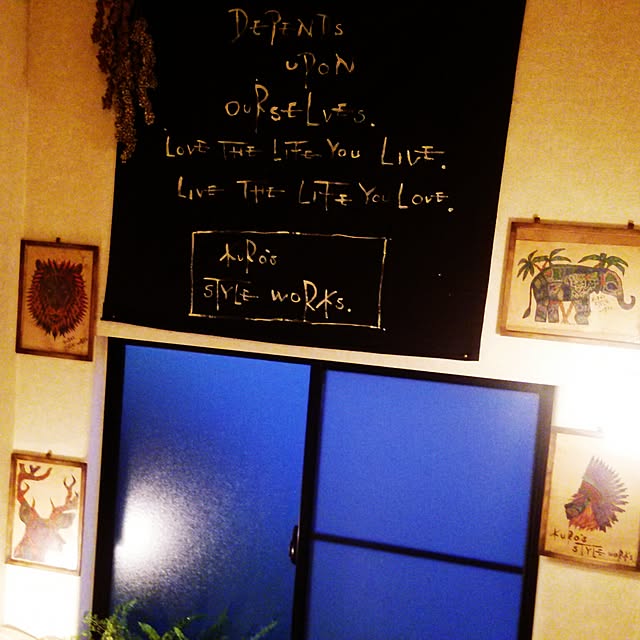 DEPENTS
UPON
OURSELVES.
LOVE THE LIFE YOU LIVE.
LIVE THE LIFE YOU LOVE.
KURO's
STYLE WORKS.
KURO's
STYLE WORKS